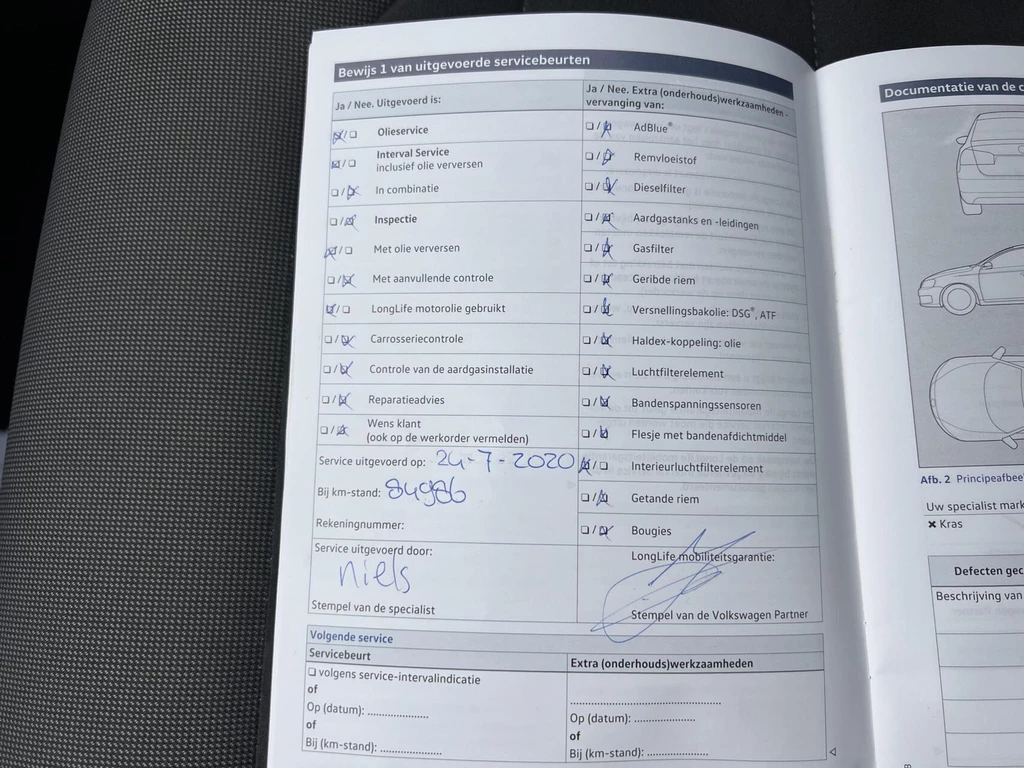 Bewijs 1 van uitgevoerde servicebeurten
Ja / Nee. Uitgevoerd is:
Olieservice
Interval Service
inclusief olie verversen
In combinatie
Inspectie
Met olie verversen
Met aanvullende controle
LongLife motorolie gebruikt
Carrosseriecontrole
Controle van de aardgasinstallatie
Reparatieadvies
Wens klant
(ook op de werkorder vermelden)
Service uitgevoerd op: 24-7-2020
Bij km-stand: 84986
Rekeningnummer:
Service uitgevoerd door:
niels
Stempel van de specialist
Ja / Nee. Extra (onderhouds)werkzaamheden -
vervanging van:
AdBlue®
Remvloeistof
Dieselfilter
Aardgastanks en -leidingen
Gasfilter
Geribde riem
Versnellingsbakolie: DSG®, ATF
Haldex-koppeling: olie
Luchtfilterelement
Bandenspanningssensoren
Flesje met bandenafdichtmiddel
Interieurluchtfilterelement
Getande riem
Bougies
LongLife mobiliteitsgarantie:
Stempel van de Volkswagen Partner
Volgende service
Servicebeurt
volgens service-intervalindicatie
of
Op (datum): ....................
of
Bij (km-stand): ....................
Extra (onderhouds)werkzaamheden
Op (datum): ....................
of
Bij (km-stand): ....................
Documentatie van de
Afb. 2 Principeafbee
Uw specialist mark
× Kras
Defecten gec
Beschrijving van
8